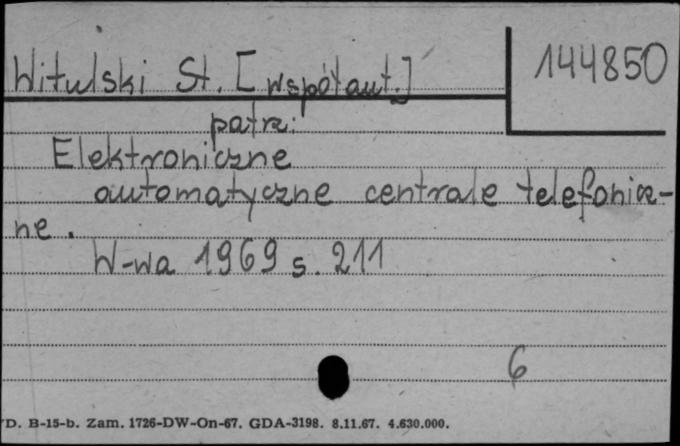 Witulski St. [współaut.]
144850
patrz:
Elektroniczne
automatyczne centrale telefonicz-
ne.
W-wa 1969 s. 211
6
D. B-15-b. Zam. 1726-DW-On-67. GDA-3198. 8.11.67. 4.630.000.